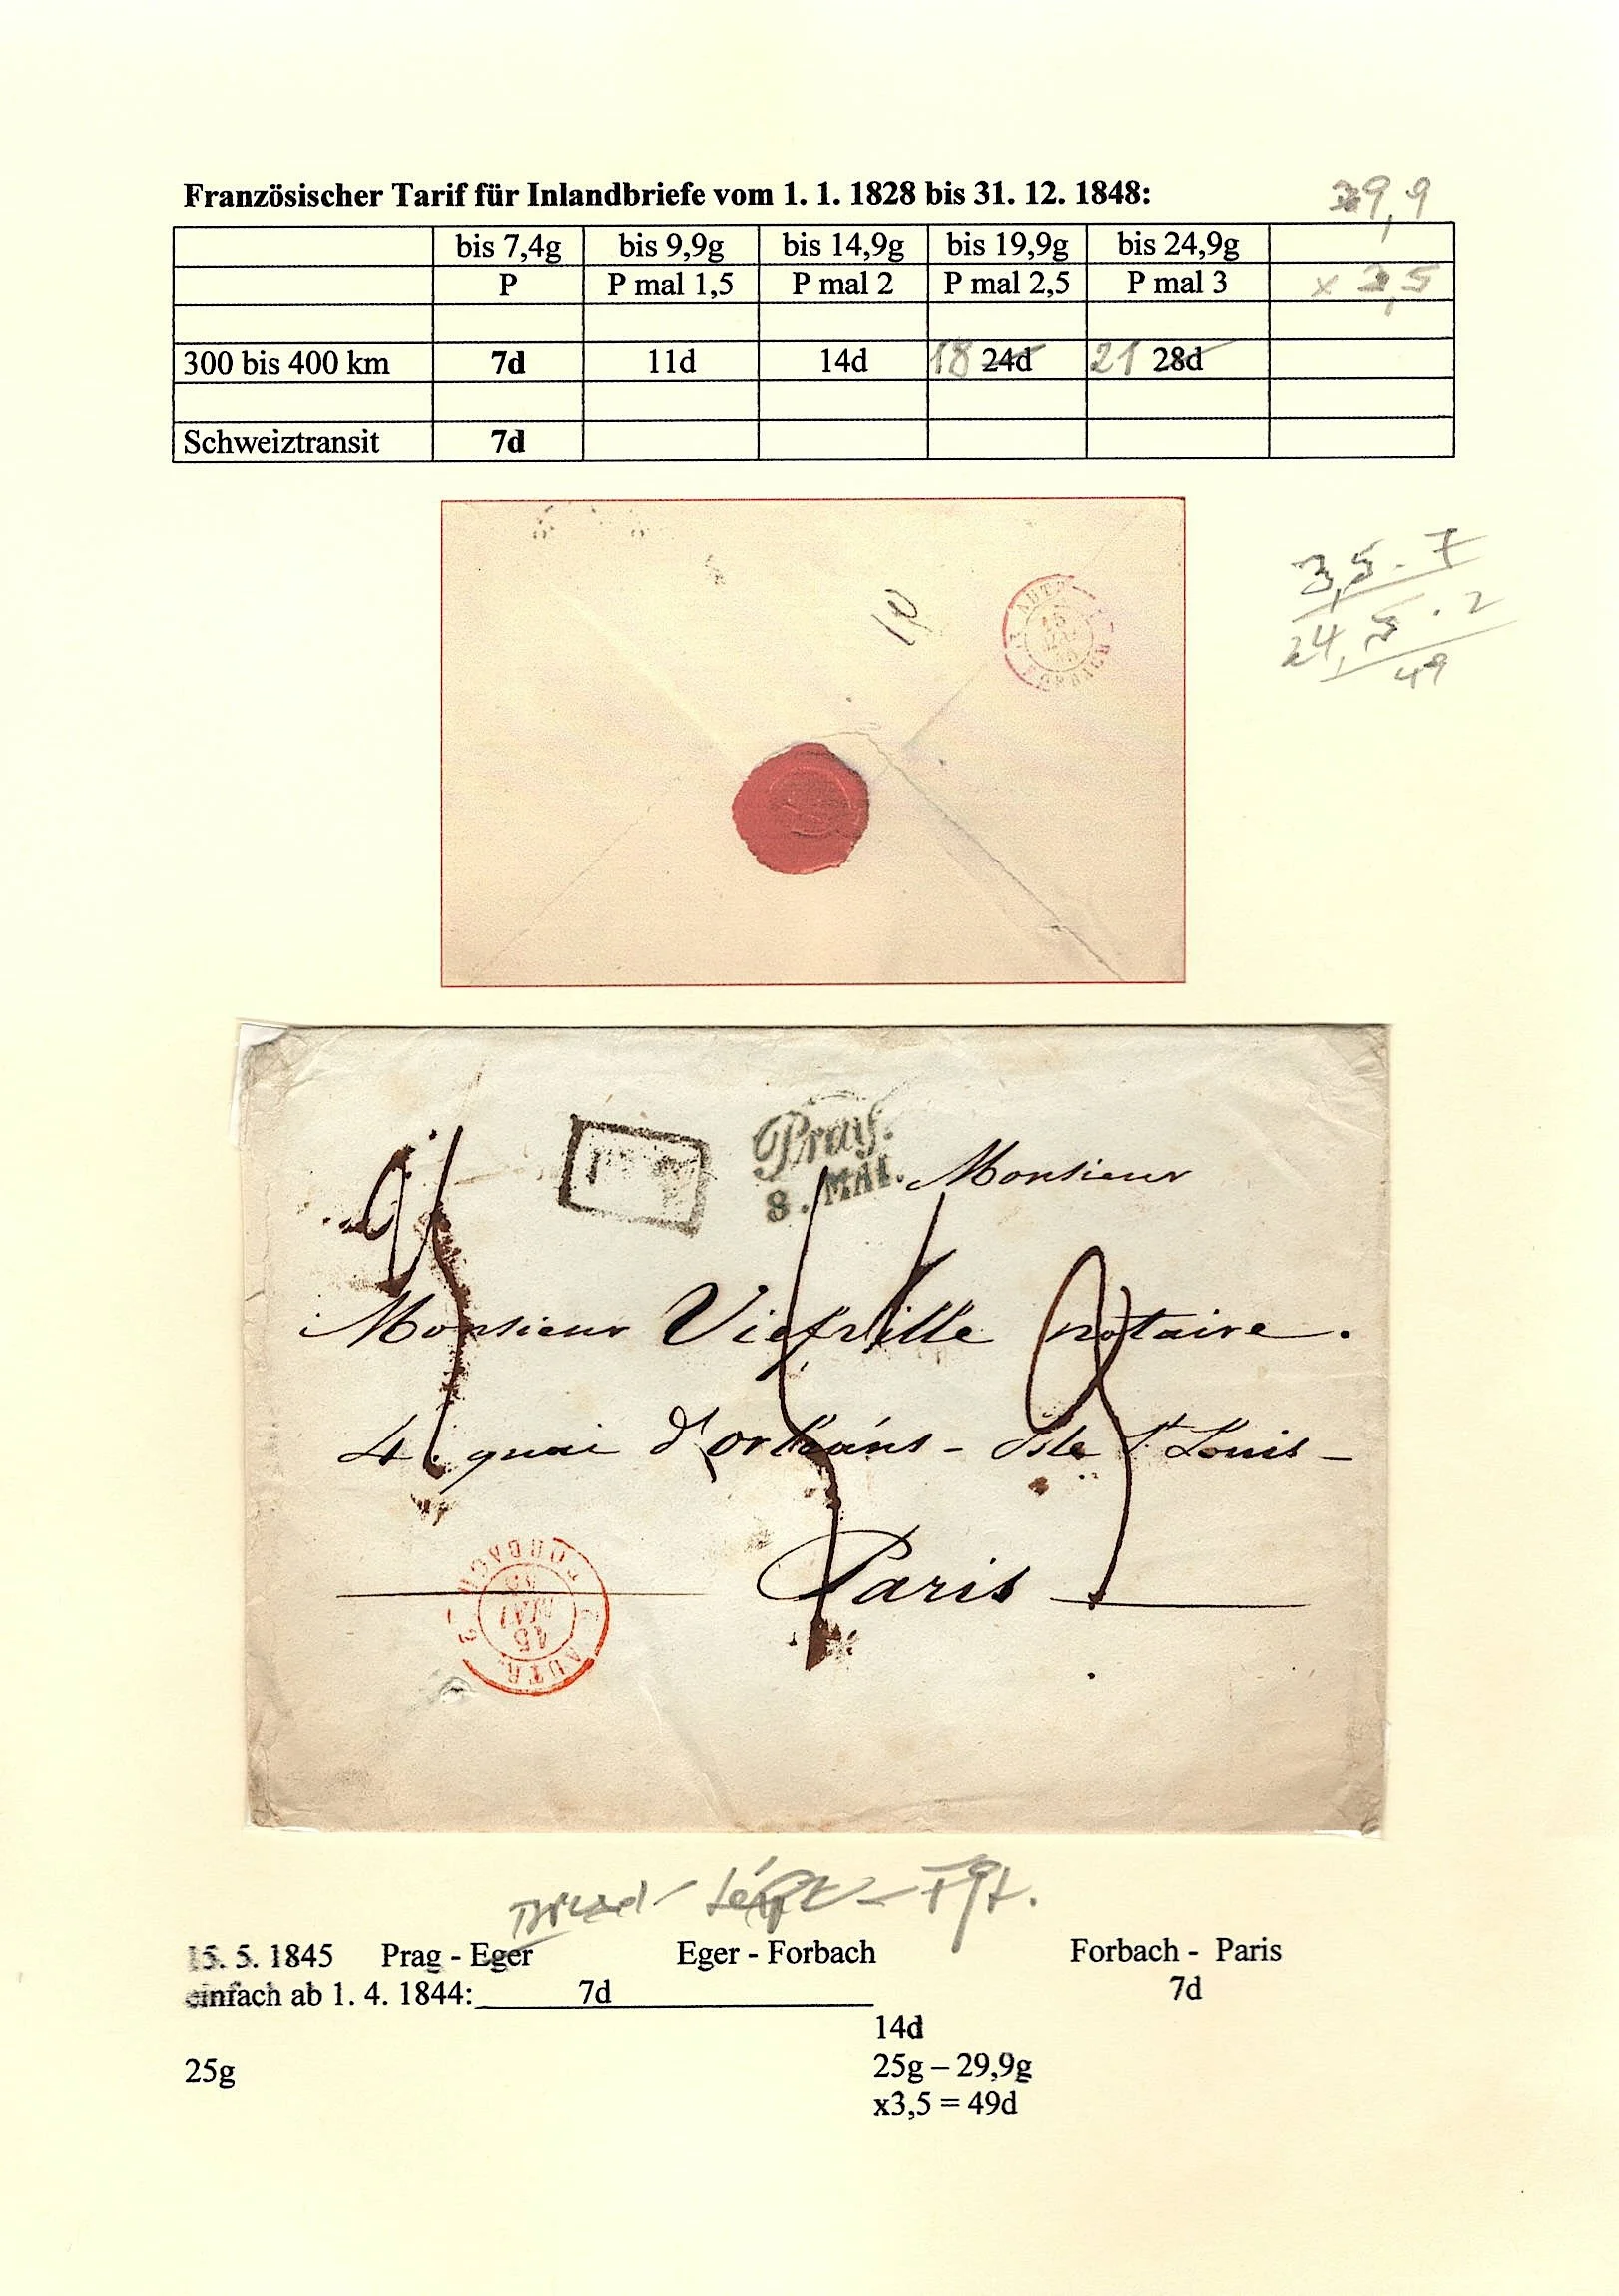 Französischer Tarif für Inlandbriefe vom 1. 1. 1828 bis 31. 12. 1848: 9,9
bis 7,4g bis 9,9g bis 14,9g bis 19,9g bis 24,9g
P P mal 1,5 P mal 2 P mal 2,5 P mal 3 x 3,5
300 bis 400 km 7d 11d 14d 18 24d 21 28d
Schweiztransit 7d
3,5 . 7
24,5 . 2
49
AUTR.
15
FORBACH
Prag.
8. MAI.
Monsieur
Monsieur Viefville notaire.
4. quai d'orléans - Isle St Louis -
Paris
AUTR. 2
15
MAI
45
FORBACH
15. 5. 1845 Prag - Eger Eger - Forbach Forbach - Paris
einfach ab 1. 4. 1844: 7d 7d
14d
25g 25g – 29,9g
x3,5 = 49d